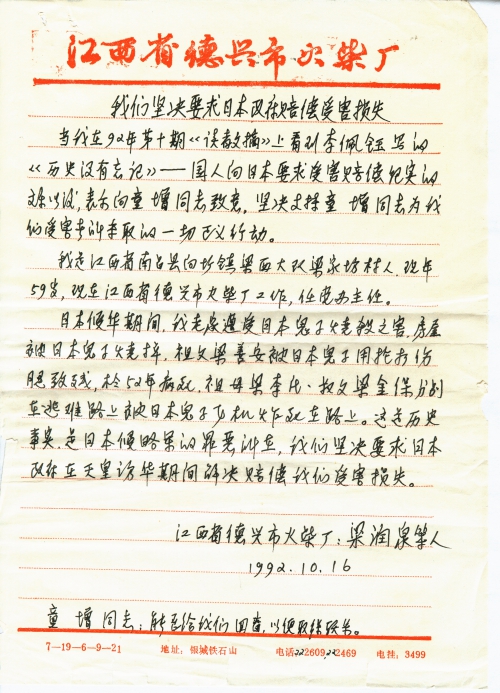 江西省德兴市火柴厂
我们坚决要求日本政府赔偿受害损失
当我在92年第十期《读者文摘》上看到李佩钰写的
《历史没有忘记》——国人向日本要求受害赔偿纪实的
文章以后,表示向童增同志致意,坚决支持童 增同志为我
们受害者所采取的一切正义行动。
我是江西省南昌县向坊镇梁西大队梁家坊村人,现年
59岁,现在江西省德兴市火柴厂工作,任党办主任。
日本侵华期间,我老家遭受日本鬼子烧杀之害,房屋
被日本鬼子烧掉,祖父梁善安被日本鬼子用枪打伤
腿致残,于52年病死,祖母梁李氏、叔父梁金保分别
在逃难路上被日本鬼子飞机炸死在路上。这是历史
事实,是日本侵略军的罪恶所在,我们坚决要求日本
政府在天皇访华期间解决赔偿我们受害损失。
江西省德兴市火柴厂:梁润泉等人
1992.10.16
童 增同志:能否给我们回音,以便取得联系。
7—19—6—9—21 地址:银城铁石山 电话222609,222469 电挂:3499